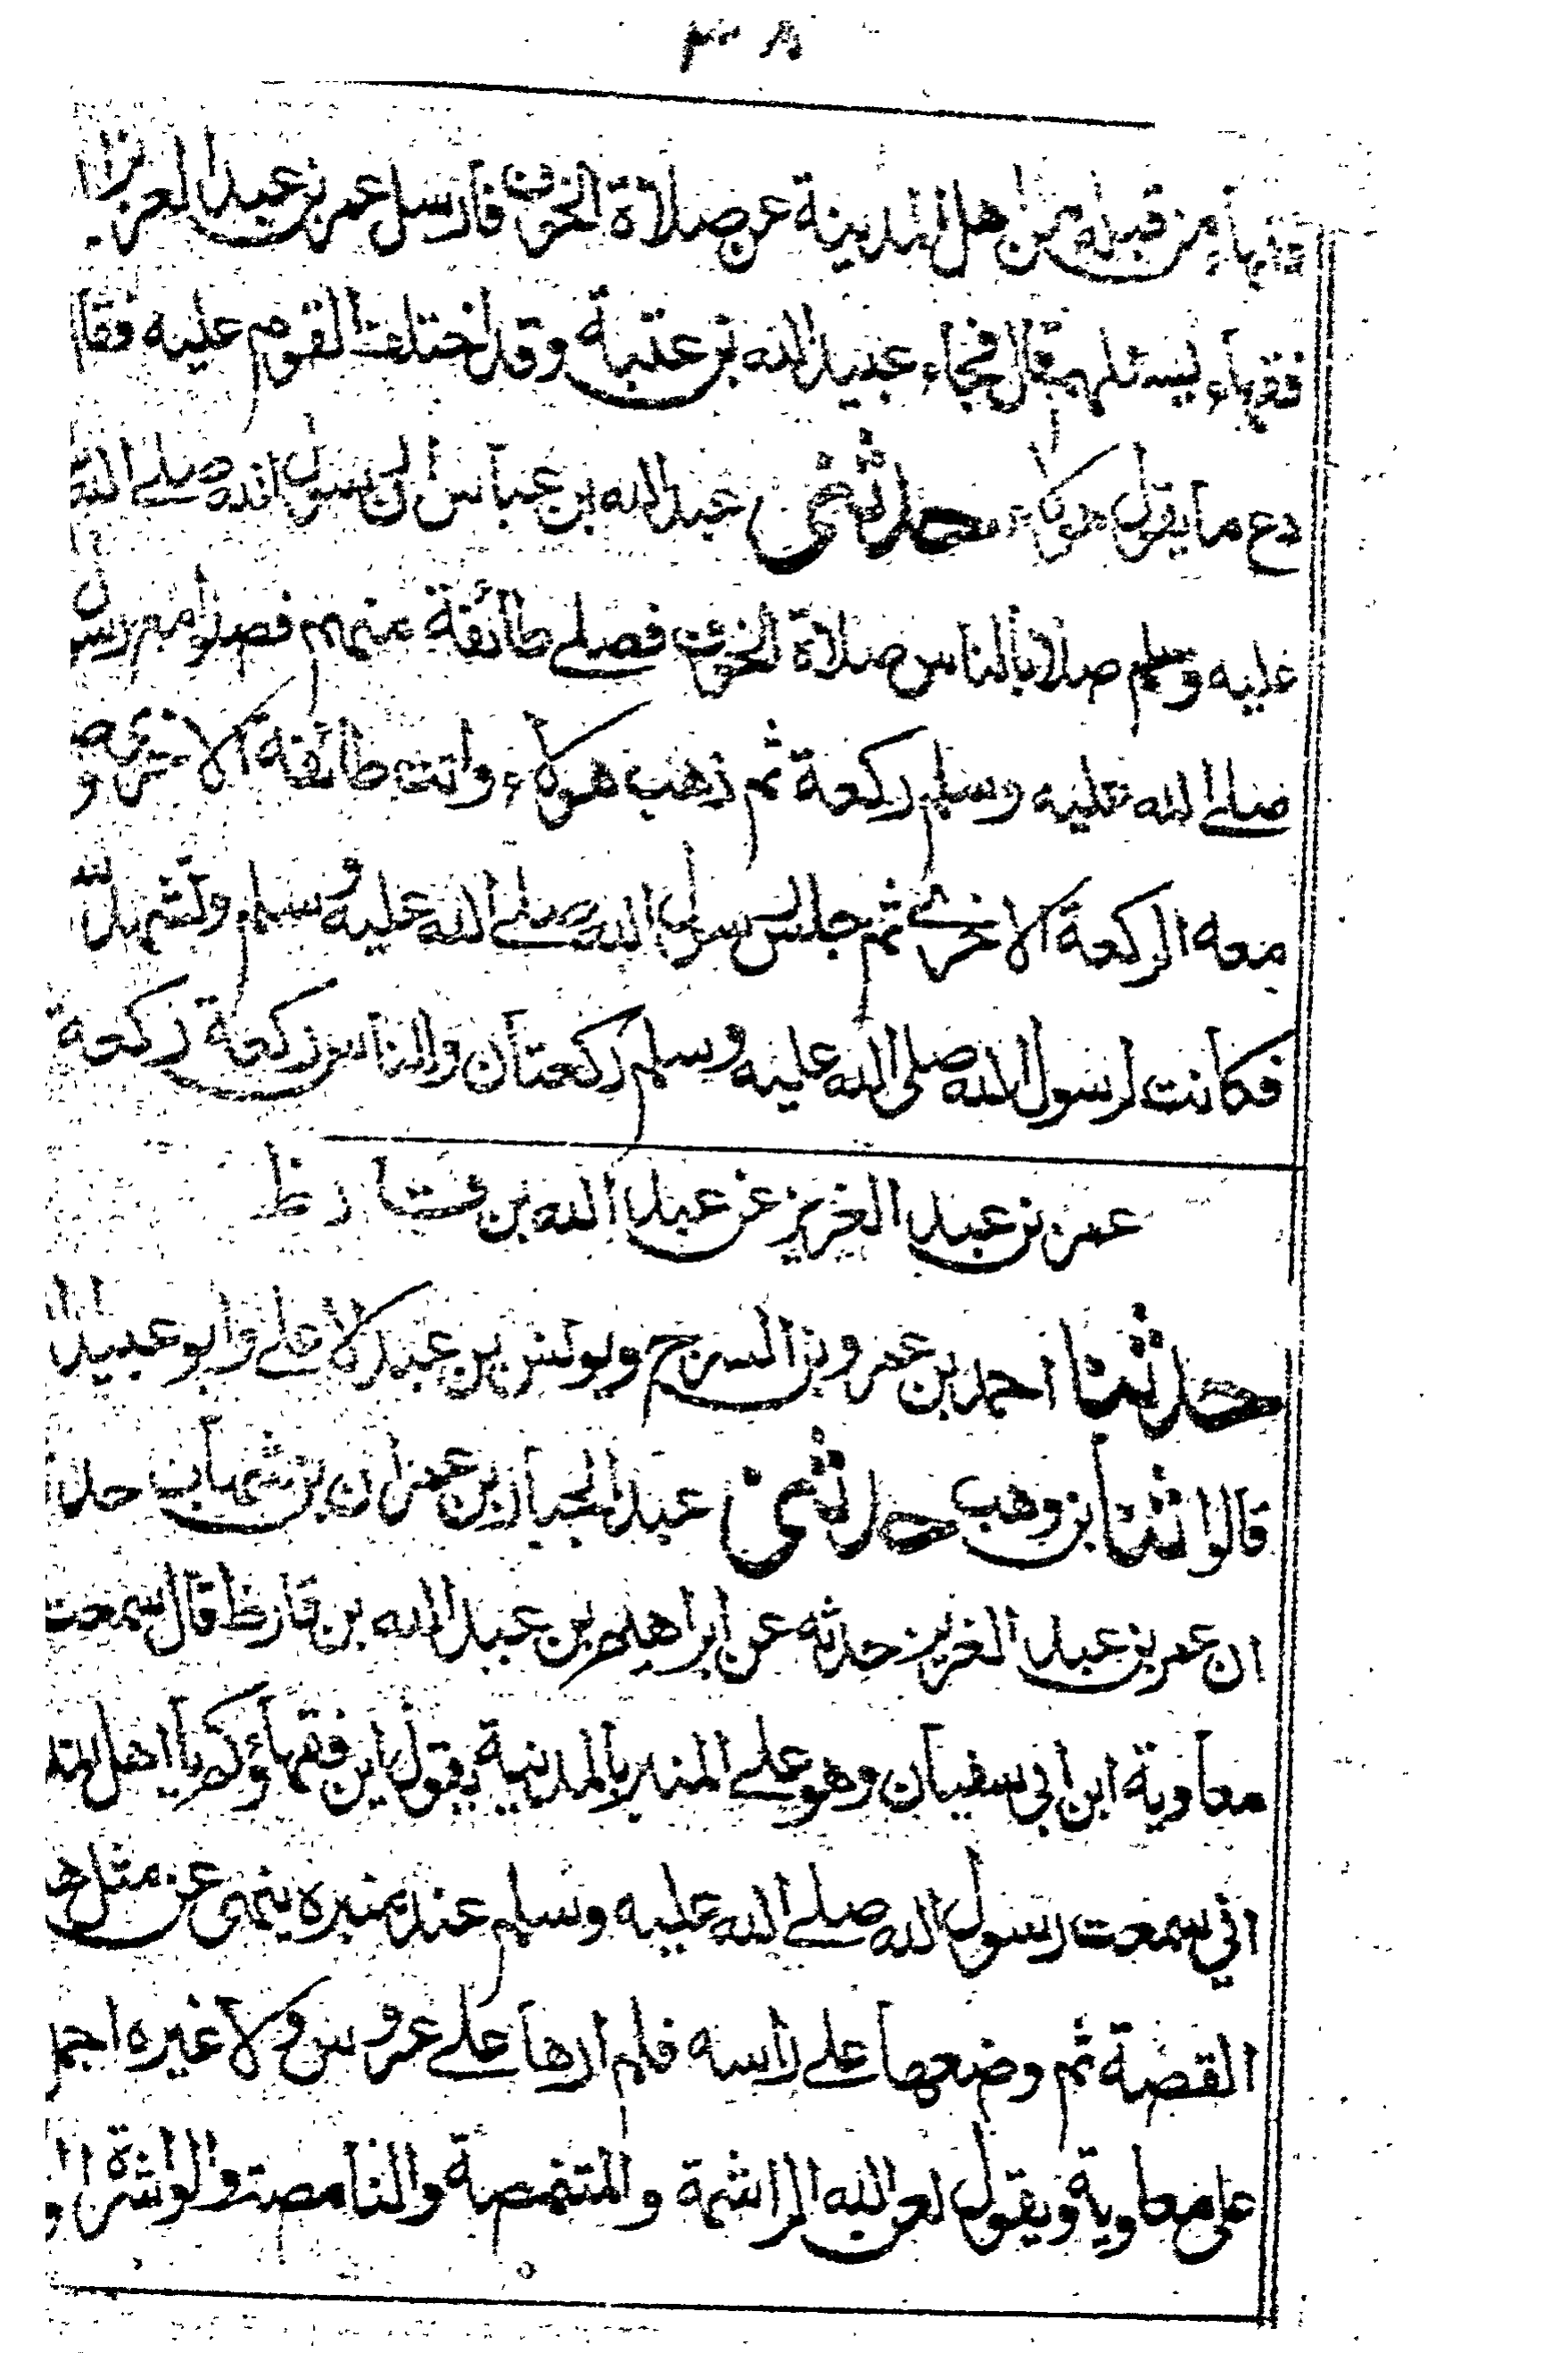 فقهاء من قبله من اهل المدينة عن صلاة الخوف فارسل عمر بن عبد العزيز
فقهاء يسئلهم قال فجاء عبيد الله بن عتبة وقد اختلف القوم عليه فقا
دع ما يقول هولاء حدثني عبد الله بن عباس ان رسول الله صلے الله
عليه وسلم صلا بالناس صلاة الخوف فصلے طائفة منهم فصلوا مع رسول
صلے الله عليه وسلم ركعة ثم ذهب هولاء واتت طائفة الاخرى
معه الركعة الاخرے ثم جلس رسول الله صلے الله عليه وسلم وتشهد
فكانت لرسول الله صلى الله عليه وسلم ركعتان والناس ركعة ركعة
عمر بن عبد العزيز عن عبد الله بن قارظ
حدثنا احمد بن عمرو بن السرح ويونس بن عبد الاعلے وابو عبيد ا
قالوا ثنا بن وهب حدثني عبد الجبار بن عمر ان بن شهاب حد
ان عمر بن عبد العزيز حدثه عن ابراهيم بن عبد الله بن قارظ قال سمعت
معاوية ابن ابي سفيان وهو علے المنبر بالمدينة يقول اين فقهاؤكم يا اهل المد
اني سمعت رسول الله صلے الله عليه وسلم عند منبره ينهى عن مثل هـ
القصة ثم وضعها علے راسه فلم ارها علے عروس ولا غيره اجم
على معاوية ويقول لعن الله الراشمة والمتنمصة والنامصة والواشرة